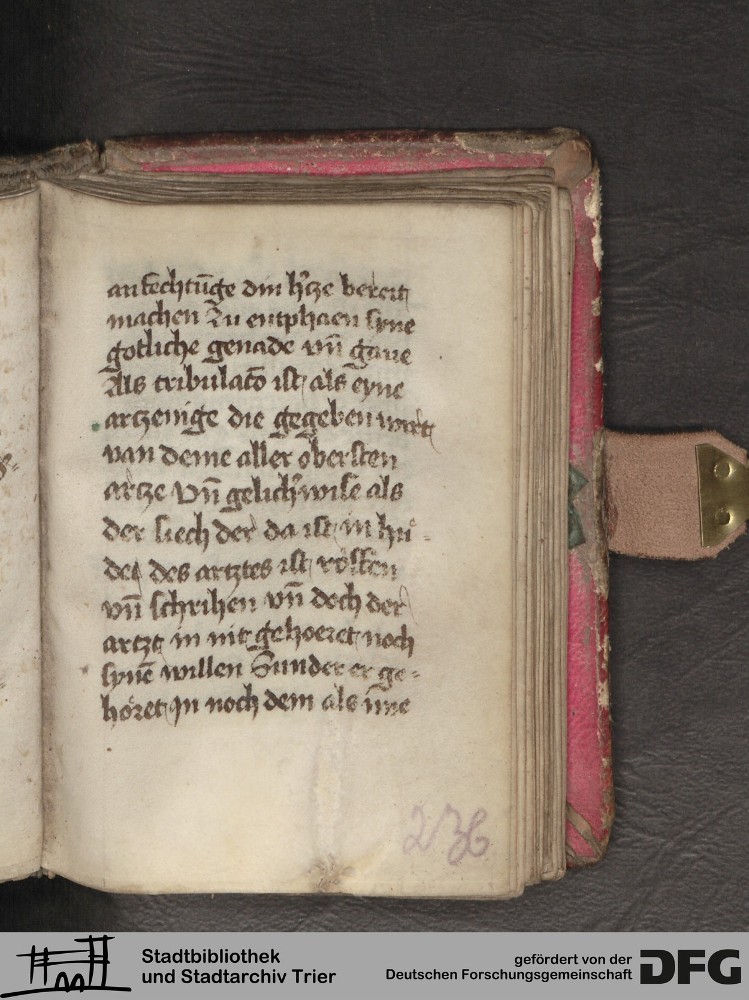 anfechtūge din h'ze bereit
machen Zu entphaen syne
gotliche genade vn̄ gaue
Als tribulatō ist als eyne
artzenige die gegeben wirt
van deme aller obersten
artze Vn̄ gelich'wise als
der siech der da ist in hn̄-
des des artztes ist roiffen
vn̄ schrihen vn̄ doch der
artzt in nit gehoeret noch
synē willen Sunder er ge-
höret In noch dem als īme
236
Stadtbibliothek
und Stadtarchiv Trier
gefördert von der
Deutschen Forschungsgemeinschaft
DFG